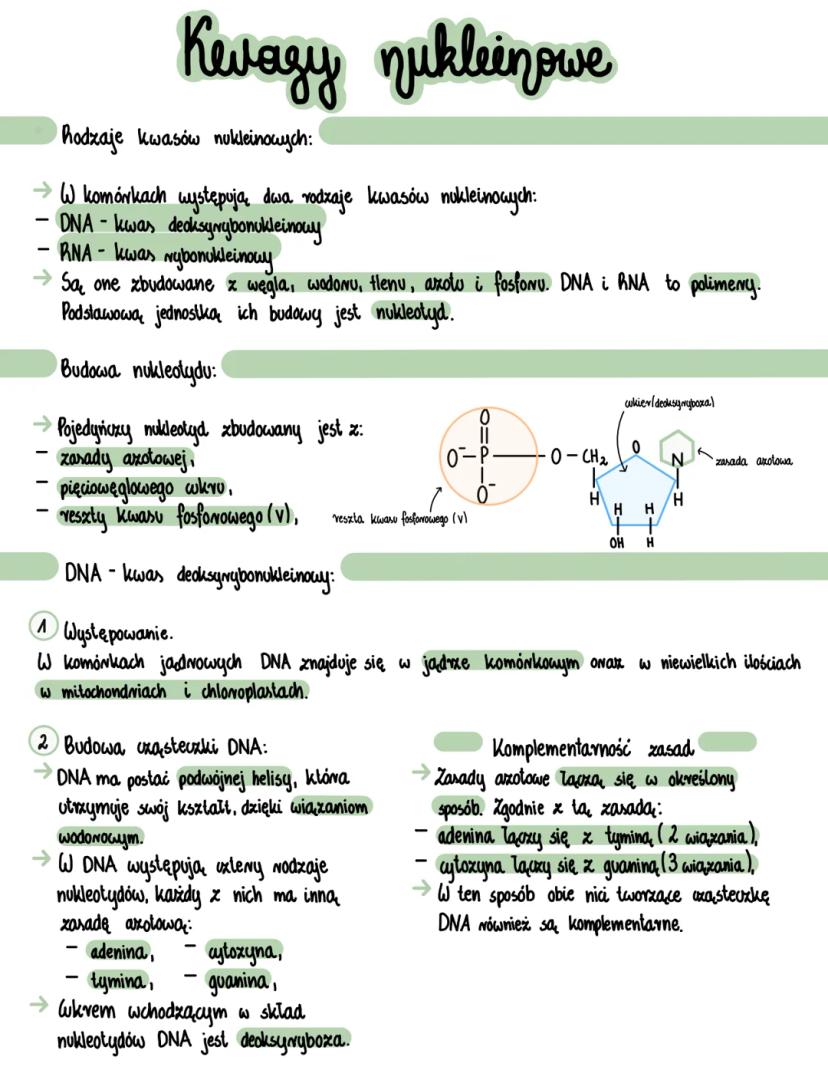 Kwasy nukleinowe
Rodzaje kwasów nukleinowych:
→ W komórkach występują dwa rodzaje kwasów nukleinowych:
– DNA - kwas deoksyrybonukleinowy
– RNA - kwas rybonukleinowy
→ Są one zbudowane z węgla, wodoru, tlenu, azotu i fosforu. DNA i RNA to polimery.
Podstawową jednostką ich budowy jest nukleotyd.
Budowa nukleotydu:
→ Pojedyńczy nukleotyd zbudowany jest z:
– zasady azotowej,
– pięciowęglowego cukru,
– reszty kwasu fosforowego (V),
cukier (deoksyryboza)
O
O⁻ – P – O – CH₂ O
O⁻
N
zasada azotowa
H H
H H
OH H
reszta kwasu fosforowego (V)
DNA - kwas deoksyrybonukleinowy:
1 Występowanie.
W komórkach jądrowych DNA znajduje się w jądrze komórkowym oraz w niewielkich ilościach
w mitochondriach i chloroplastach.
2 Budowa cząsteczki DNA:
→ DNA ma postać podwójnej helisy, która
utrzymuje swój kształt, dzięki wiązaniom
wodorowym.
→ W DNA występują cztery rodzaje
nukleotydów, każdy z nich ma inną
zasadę azotową:
– adenina, – cytozyna,
– tymina, – guanina,
→ Cukrem wchodzącym w skład
nukleotydów DNA jest deoksyryboza.
Komplementarność zasad
→ Zasady azotowe łączą się w określony
sposób. Zgodnie z tą zasadą:
– adenina łączy się z tyminą (2 wiązania),
– cytozyna łączy się z guaniną (3 wiązania),
→ W ten sposób obie nici tworzące cząsteczkę
DNA również są komplementarne.